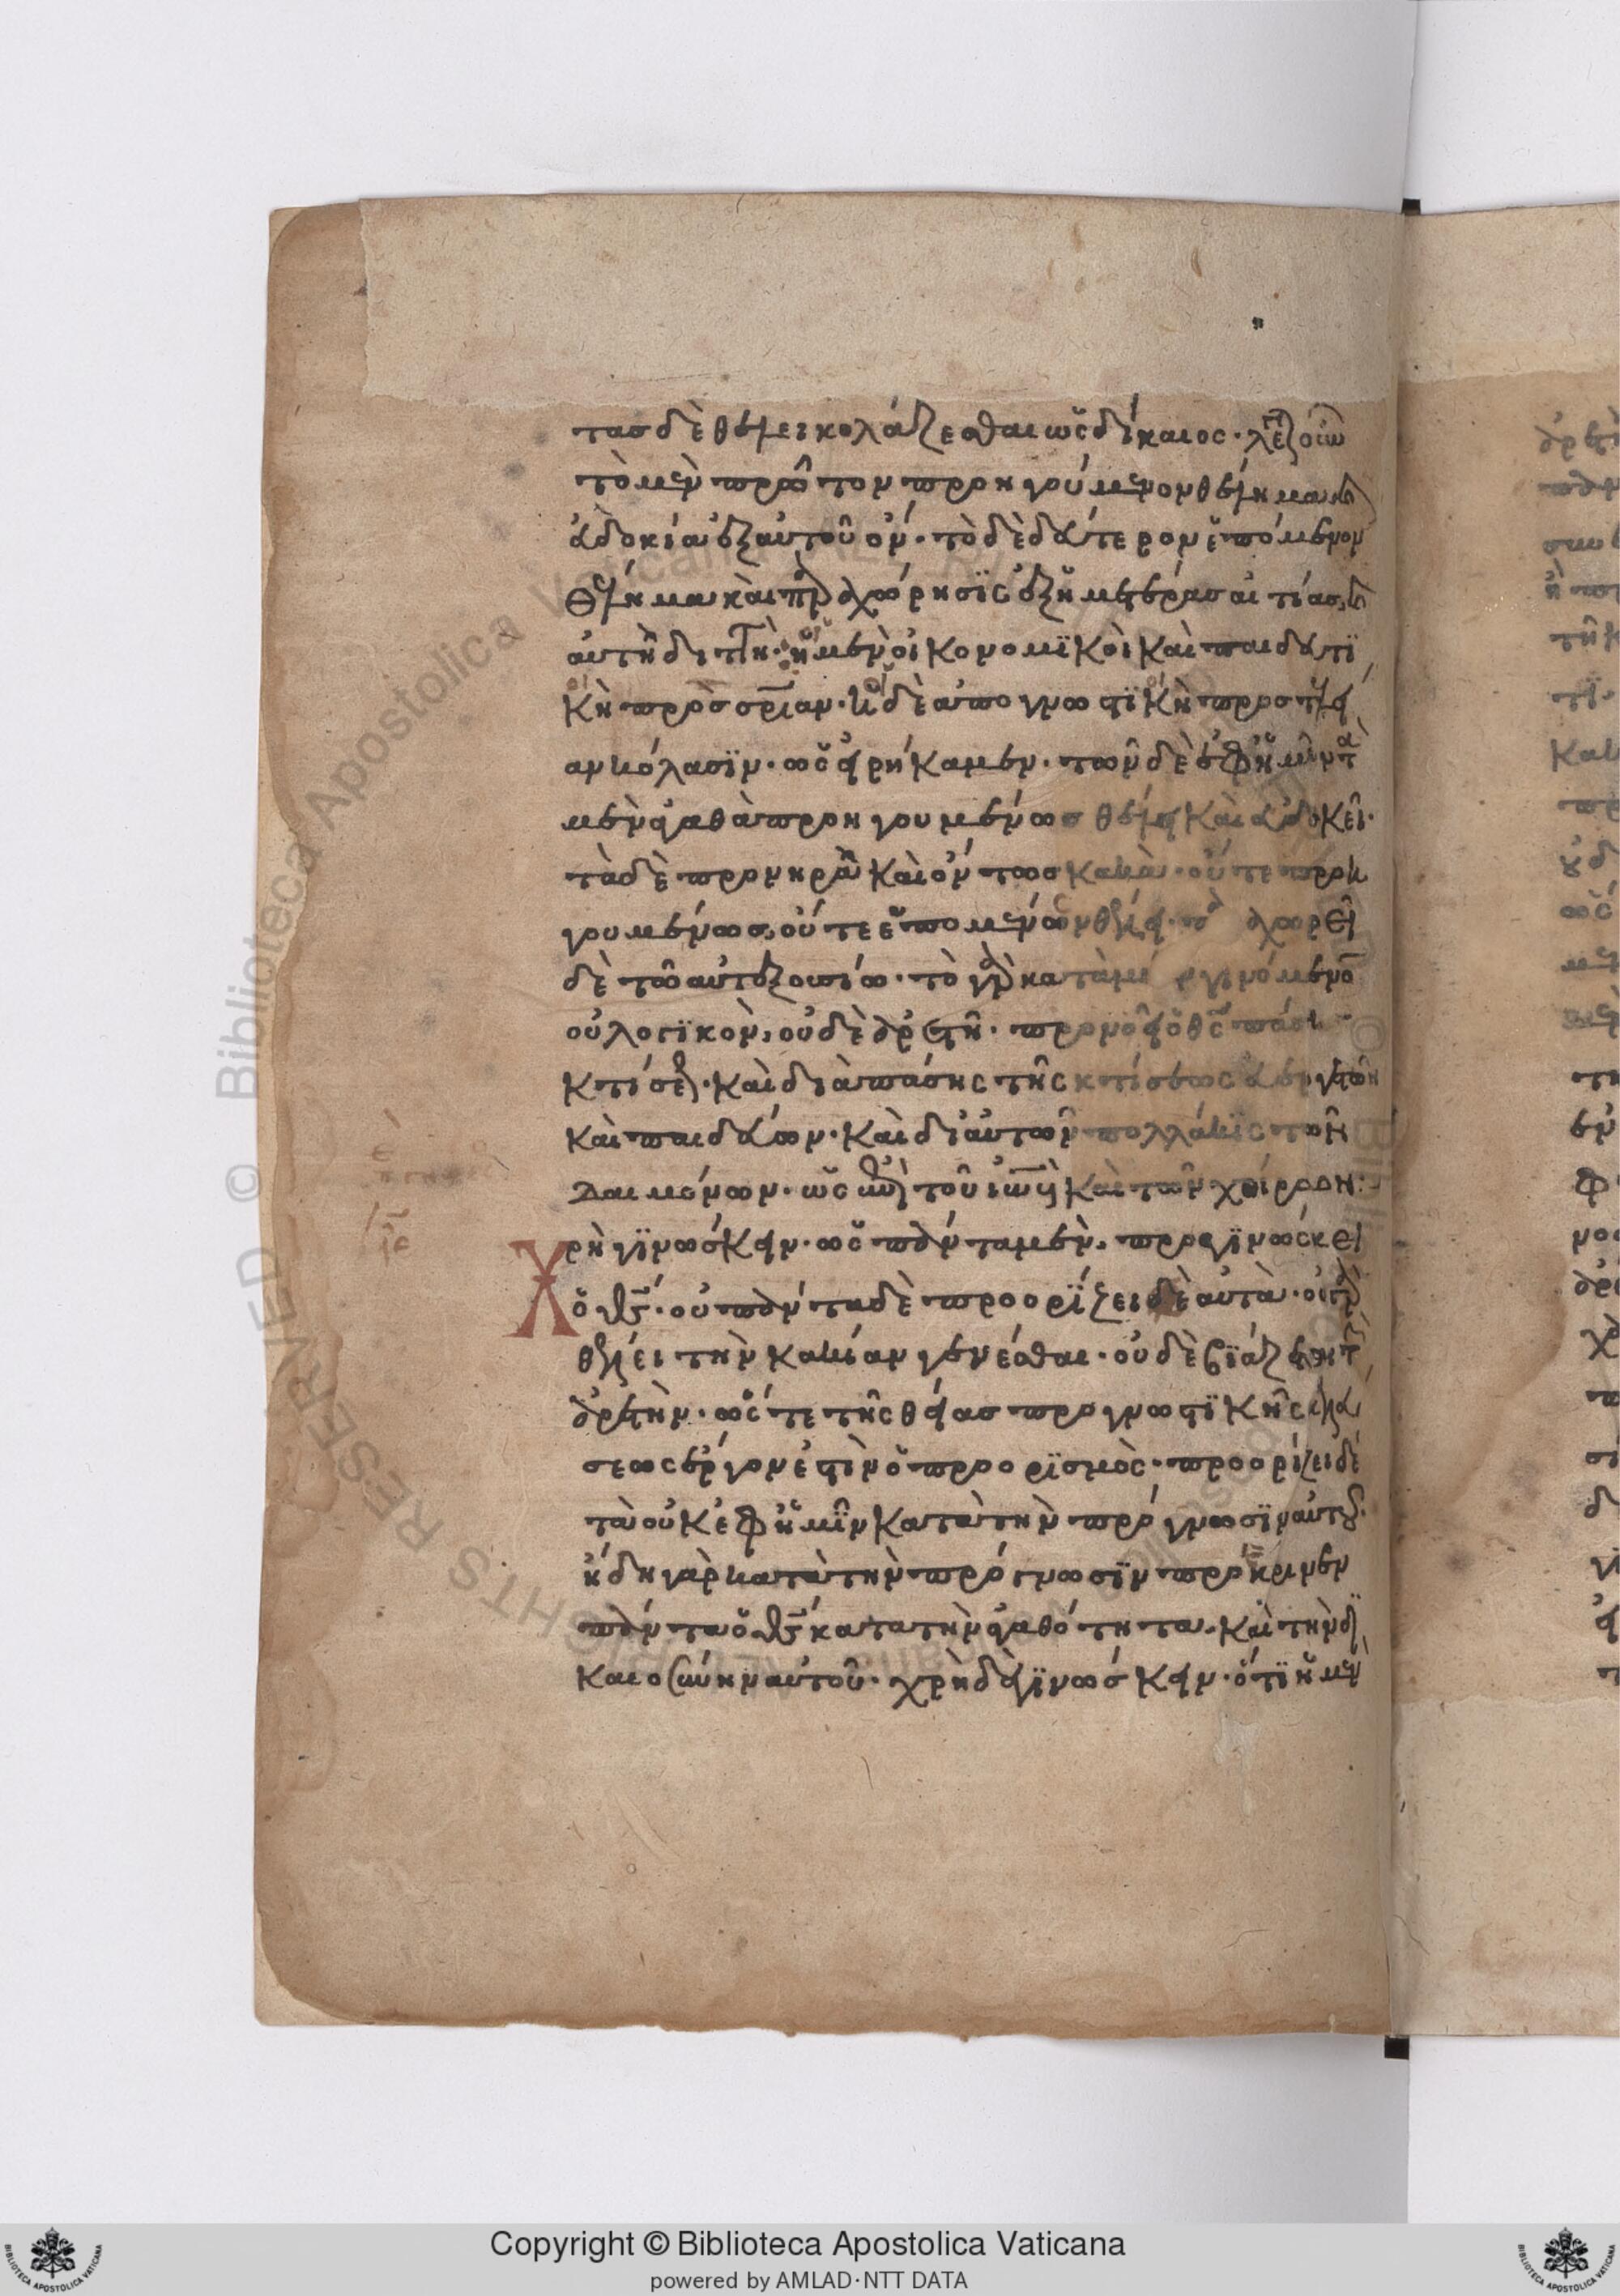 τας δὲ θέλει κολάζεσθαι ὡς δίκαιος· λέγεται οὖν
τὸ μὲν πρῶτον προηγούμενον θέλημα καὶ
εὐδοκία ἐξ αὐτοῦ ὄν· τὸ δὲ δεύτερον ἑπόμενον
θέλημα καὶ παραχώρησις ἐξ ἡμετέρας αἰτίας, καὶ
αὐτὴ διττή· ἡ μὲν οἰκονομικὴ καὶ παιδευτι
κὴ πρὸς σρίαν· ἡ δὲ ἀπογνωστικὴ πρὸς τελεί
αν κόλασιν· ὡς εἰρήκαμεν· τῶν δὲ ἐφ ἡμῖν τὰ
μὲν ἀγαθὰ προηγουμένως θέλει καὶ εὐδοκεῖ·
τὰ δὲ πονηρὰ καὶ ὄντως κακὰ· οὔτε προη
γουμένως, οὔτε ἑπομένως θέλει· παραχωρεῖ
δὲ τῶ αὐτεξουσίω· τὸ γὰρ κατὰ γινόμενον
οὐ λογικὸν, οὐδὲ ἀρετή· προνοεῖ ὁ θς πάσης
κτίσεως· καὶ διὰ πάσης τῆς κτίσεως εὐεργετῶν
καὶ παιδεύων· καὶ δι αὐτῶν πολλάκις τῶν
δαιμόνων· ὡς ἐπὶ τοῦ ἰὼβ καὶ τῶν χοίρων:
Χρὴ γινώσκειν· ὡς πάντα μὲν, προγινώσκει
ὁ θς· οὐ πάντα δὲ προορίζει δὲ αὐτὰ· οὐ γὰρ
θέλει τὴν κακίαν γενέσθαι· οὐδὲ βιάζεται τὴν
ἀρετὴν· ὥστε τῆς θείας προγνωστικῆς κελεύ
σεως ἔργον ἐστὶν ὁ προορισμὸς· προορίζει δὲ
τὰ οὐκ ἐφ ἡμῖν κατὰ τὴν πρόγνωσιν αὐτοῦ·
ἤδη γὰρ κατὰ τὴν πρόγνωσιν προέκρινεν
πάντα ὁ θς κατὰ τὴν ἀγαθότητα, καὶ τὴν δι
καιοσύνην αὐτοῦ· χρὴ δὲ γινώσκειν· ὅτι ἡ μὲν
Copyright © Biblioteca Apostolica Vaticana
powered by AMLAD·NTT DATA